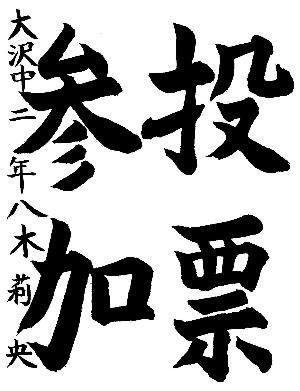 投票
参加
大沢中二年八木莉央